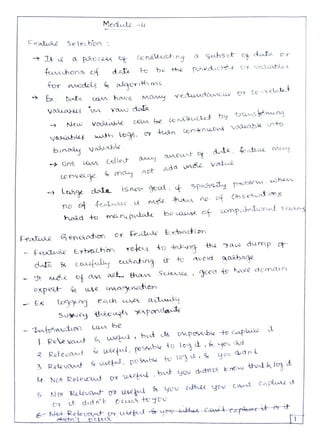 Module -4
Feature Selection :
→ It is a process of constructing a subset of data or
functions of data to be the predictors or variables
for models & algorithms
→ Ex Data can have many redundancies or co-related
values in raw data
→ New variable can be constructed by transforming
variables with logs, or turn continuous variable into
binary variable
→ One can collect any amount of data, feature may
converge & may not add more value
→ Large data is not good, if sparsity problem, when
no of features is more than no of observations
hard to manipulate because of computational
Feature Generation or Feature Extraction
- Feature Extraction refers to taking the raw dump of
data & carefully curating it to avoid garbage
- It more of an art than Science, good to have domain
expert & use imagination
- Ex Logging each user actually
Survey through respondents
- Information can be
1 Relevant & useful, but its impossible to capture it
2 Relevant & useful, possible to log it, & you did
3 Relevant & useful, possible to log it, & you didn't
4 Not Relevant or useful, but you didnot know that & log it
5 Not Relevant or useful & you either you cant capture it
or it didn't occur to you
6 Not Relevant or useful & you either cant capture it or it
didn't occur
1